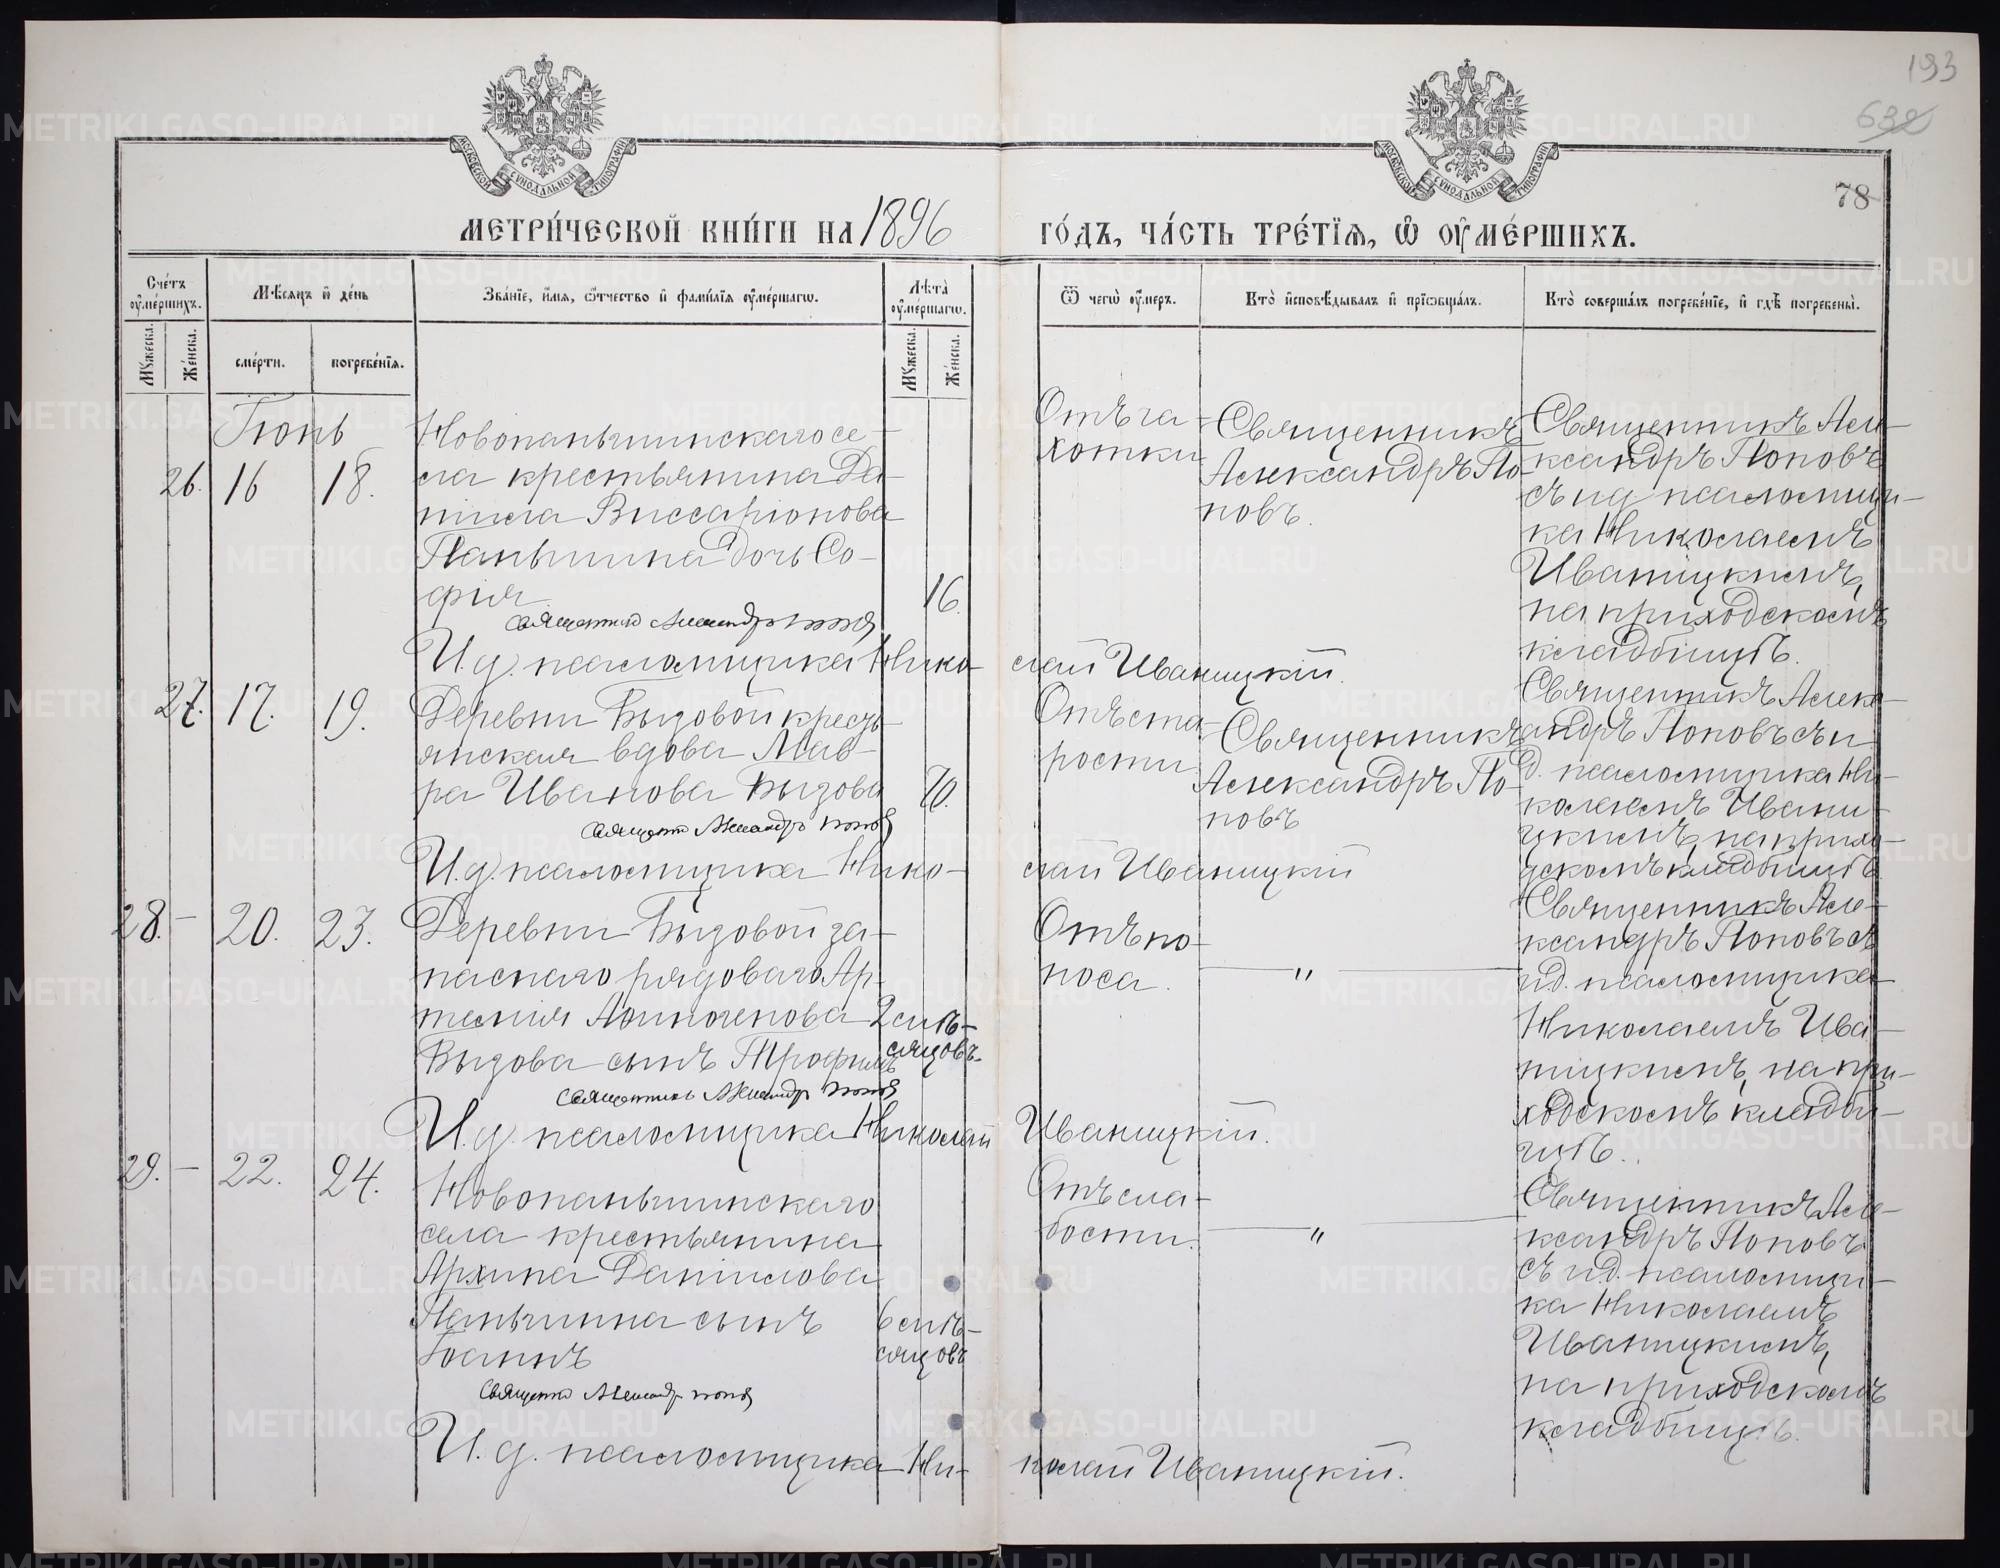 193
632
78
МОСКОВСКОЙ СѴНОДАЛЬНОЙ ТИПОГРАФІИ
МОСКОВСКОЙ СѴНОДАЛЬНОЙ ТИПОГРАФІИ
МЕТРИ́ЧЕСКОЙ КНИ́ГИ НА 1896 ГО́ДЪ, ЧА́СТЬ ТРЕ́ТІѦ, Ѡ҆ ОУ҆МЕ́РШИХЪ.
Сче́тъ оу҆ме́ршихъ.
Мꙋжеска.
Же́нска.
Мѣ́сяцъ и҆ де́нь
сме́рти.
погребе́нїѧ.
Зва́нїе, и҆́мѧ, ѻ҆́тчество и҆ фами́лїѧ оу҆ме́ршагѡ.
Лѣ́та̀ оу҆ме́ршагѡ.
Мꙋжеска.
Же́нска.
Ѿ чегѡ̀ оу҆́меръ.
Кто̀ и҆сповѣ́дывалъ и҆ прїѡбща́лъ.
Кто̀ соверша́лъ погребе́нїе, и҆ гдѣ̀ погребены̀.
Іюнь
26. 16 18.
Новопаньшинскаго се-
ла крестьянина Да-
ніила Виссаріонова
Паньшина дочь Со-
фія.
16.
Отъ ча-
хотки
Священникъ
Александръ По-
повъ.
Священникъ Але-
ксандръ Поповъ
съ и д псаломщи-
ка Николаемъ
Иваницкимъ,
на приходскомъ
кладбищѣ.
Священникъ Александръ Поповъ
И. д. псаломщика Нико-
лай Иваницкій.
27. 17. 19.
Деревни Бызовой кресть-
янская вдова Мав-
ра Иванова Бызова
70.
Отъ ста-
рости
Священникъ
Александръ По-
повъ
Священникъ Алекс-
андръ Поповъ съ и
д. псаломщика Ни-
колаемъ Ивани-
цкимъ, на прихо-
дскомъ кладбищѣ
Священникъ Александръ Поповъ
И. д. псаломщика Нико-
лай Иваницкій
28. – 20. 23.
Деревни Бызовой за-
паснаго рядоваго Ар-
темія
Бызова сынъ Трофимъ
2 мѣ-
сяцовъ
Отъ по-
носа.
"
Священникъ Але-
ксандръ Поповъ съ
и.д. псаломщика
Николаемъ Ива-
ницкимъ, на при-
ходскомъ кладби-
щѣ.
Священникъ Александръ Поповъ
И. д. псаломщика Николай
Иваницкій.
29. – 22. 24.
Новопаньшинскаго
села крестьянина
Архипа Даніилова
Паньшина сынъ
Іоаннъ
6 мѣ-
сяцовъ
Отъ сла-
бости.
"
Священникъ Але-
ксандръ Поповъ
съ и.д. псаломщи-
ка Николаемъ
Иваницкимъ,
на приходскомъ
кладбищѣ.
Священникъ Александръ Поповъ
И. д. псаломщика Ни-
колай Иваницкій.
METRIKI.GASO-URAL.RU